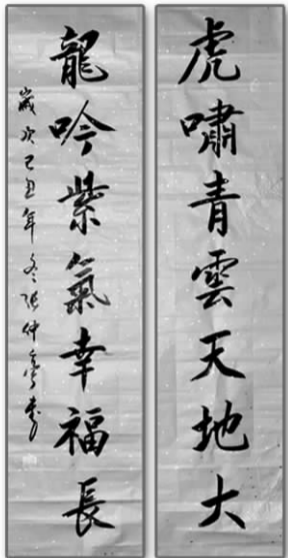 虎嘯青雲天地大
龍吟紫氣幸福長
歲次己丑年冬張仲亭書